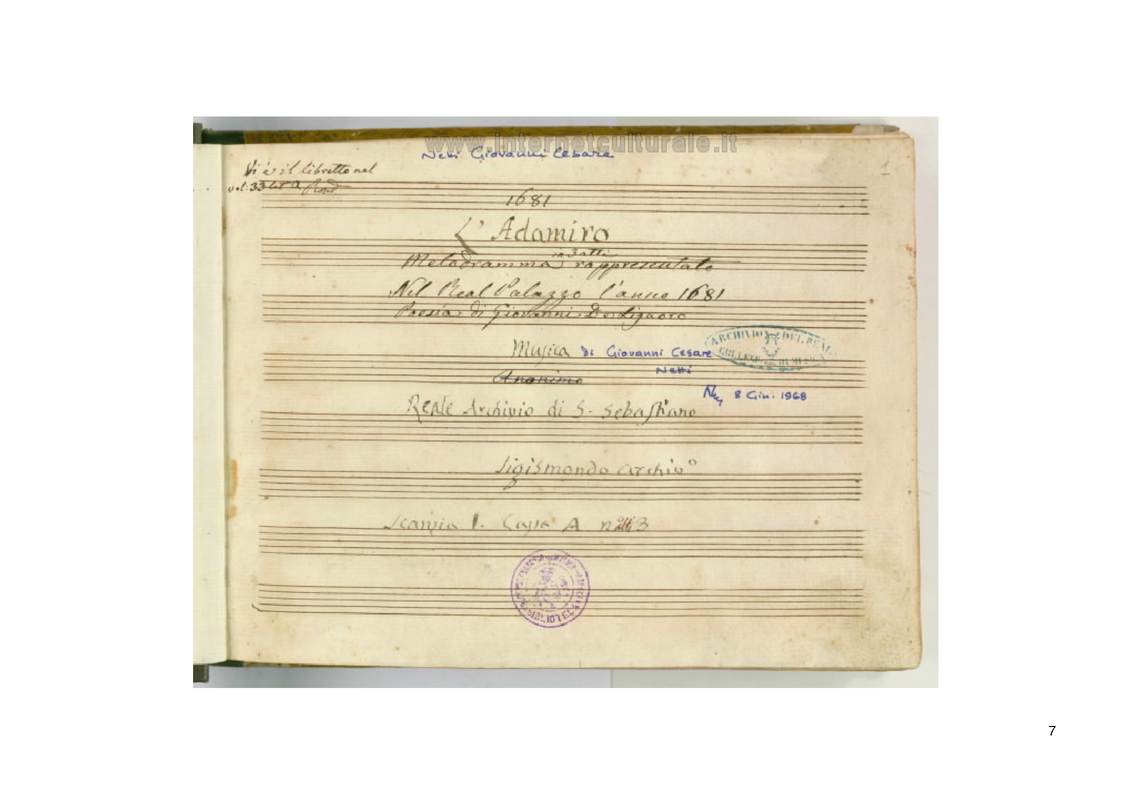 www.internetculturale.it
Netti Giovanni Cesare
Vi è il libretto nel
vol:
1
1681
L' Adamiro
in 3 atti
Melodramma rappresentato
Nel Real Palazzo l'anno 1681
Poesia di Giovanni De Liguoro
Musica di Giovanni Cesare
Netti
Anonimo
ARCHIVIO DEL REAL
COLLEGIO DI MUSICA
8 Giu. 1968
Reale Archivio di S. Sebastiano
Sigismondo Archivo
Scanzia 1. Casse A n 3
7